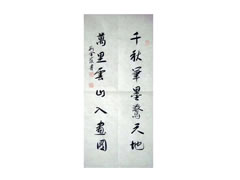 千秋笔墨惊天地
萬里雲山入畫圖